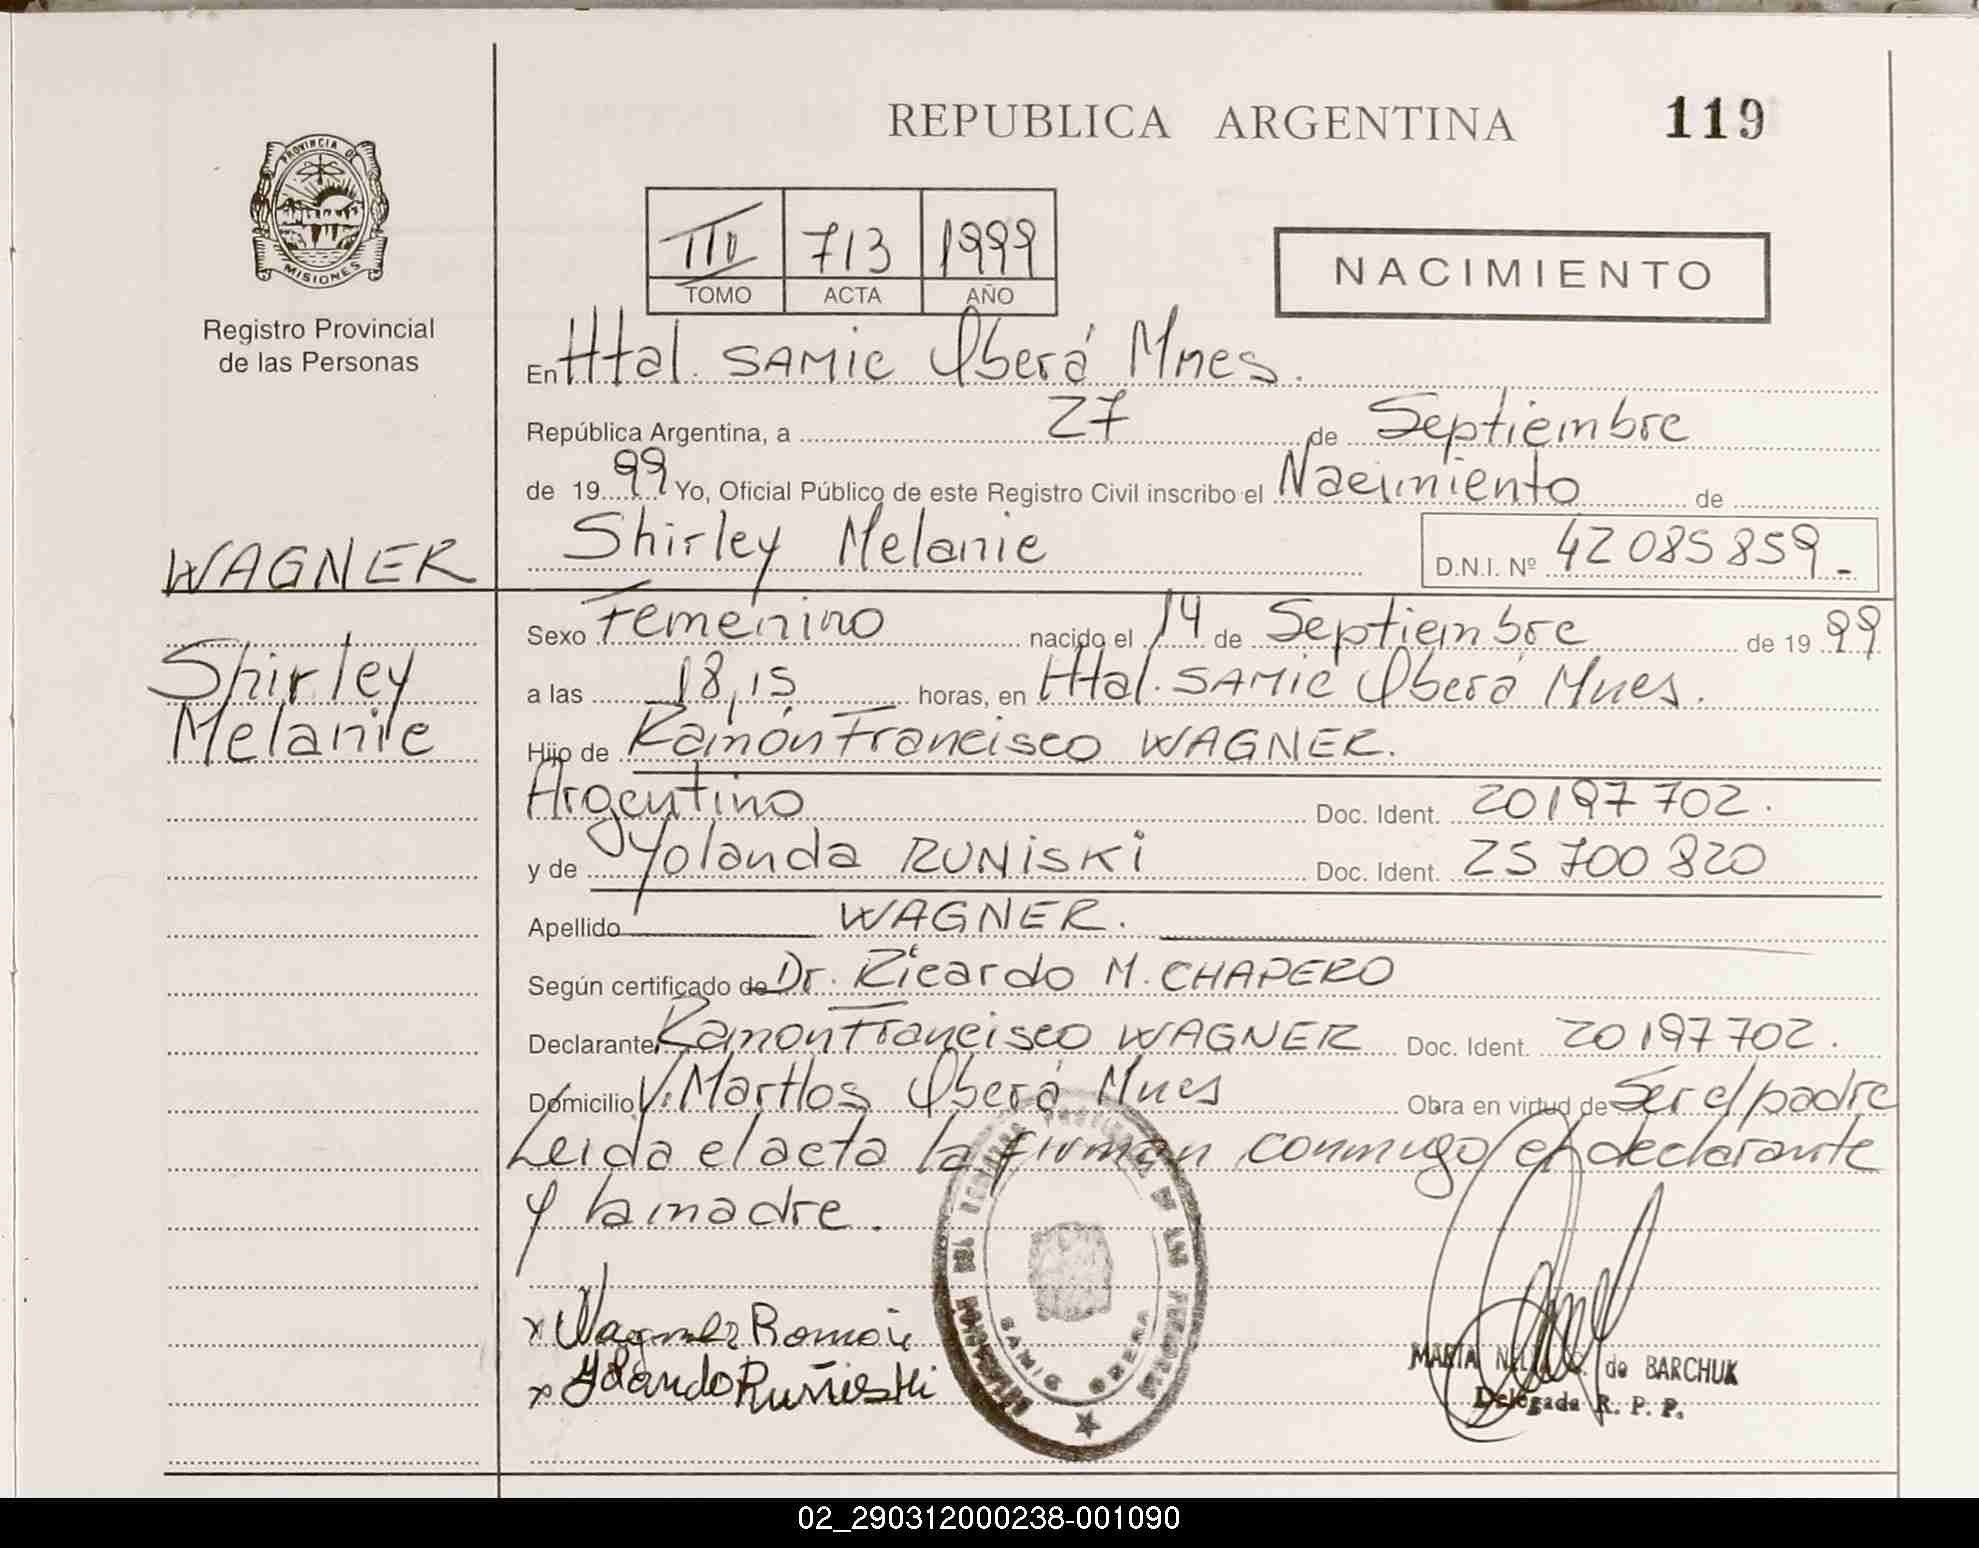 REPUBLICA ARGENTINA 119
PROVINCIA DE MISIONES
Registro Provincial
de las Personas
III 713 1999
TOMO ACTA AÑO
NACIMIENTO
En Htal. SAMIC Oberá Mnes.
República Argentina, a 27 de Septiembre
de 1999 Yo, Oficial Público de este Registro Civil inscribo el Nacimiento de
Shirley Melanie D.N.I. Nº 42085859
WAGNER
Shirley
Melanie
Sexo Femenino nacido el 14 de Septiembre de 1999
a las 18,15 horas, en Htal. SAMIC Oberá Mnes.
Hijo de Ramón Francisco WAGNER.
Argentino Doc. Ident. 20197702.
y de Yolanda RUNISKI Doc. Ident. 25700820
Apellido WAGNER.
Según certificado de Dr. Ricardo M. CHAPERO
Declarante Ramon Francisco WAGNER Doc. Ident. 20197702.
Domicilio V. Martlos Oberá Mnes Obra en virtud de Ser el padre
Leida el acta la firman conmigo el declarante
y la madre.
x Wagner Ramon
x Yolanda Ruñiski
SAMIC OBERA
MARIA de BARCHUK
Delegada R. P. P.
02_290312000238-001090